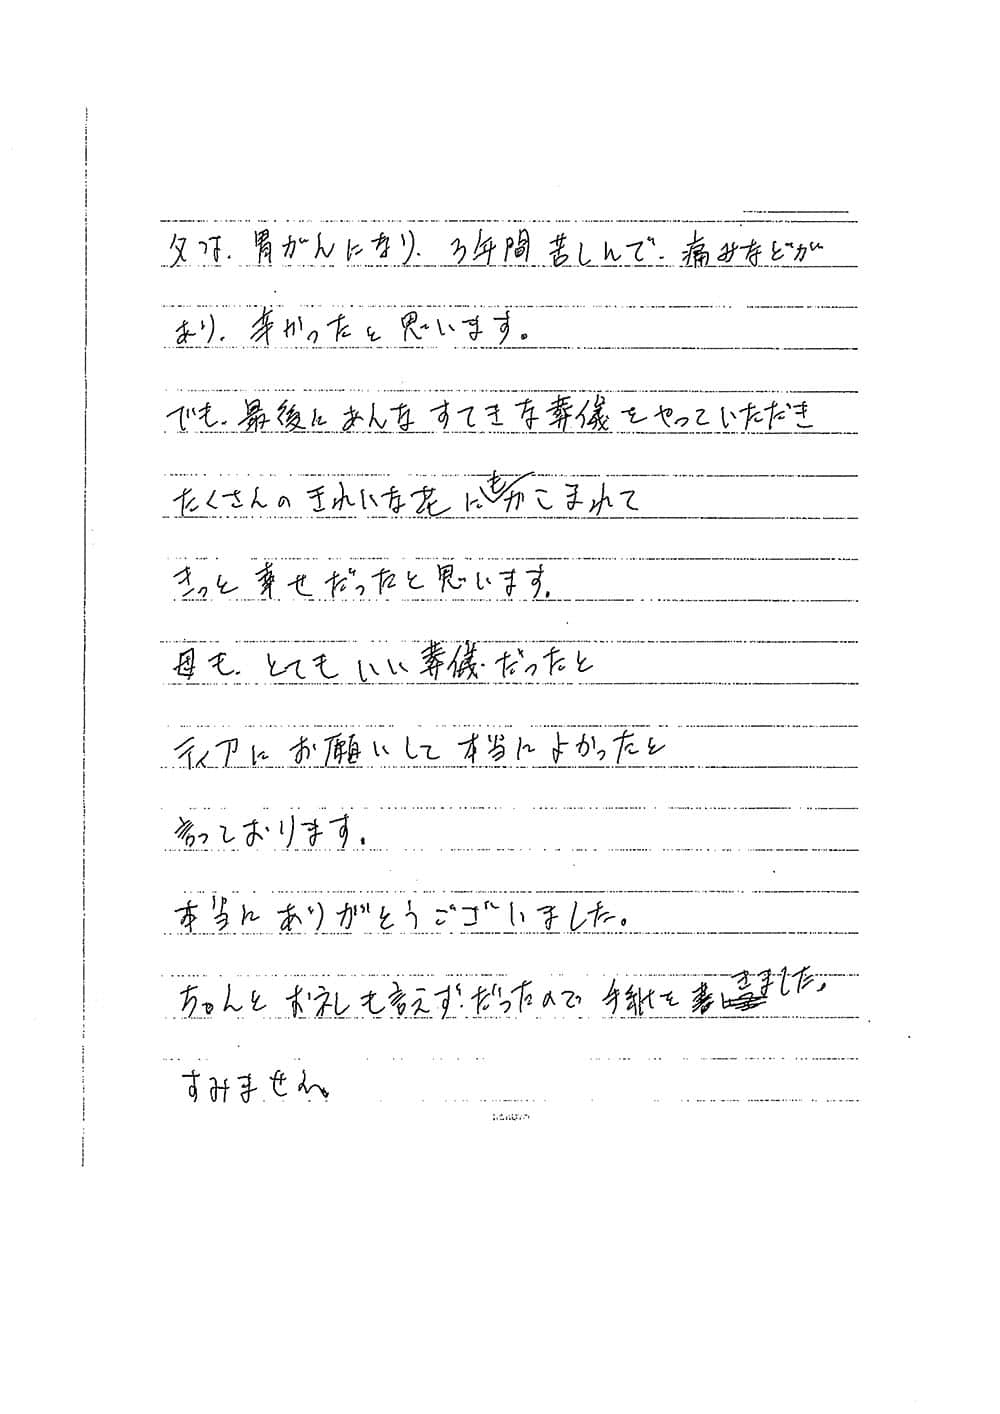 父は、胃がんになり、3年間苦しんで、痛みなどが
あり、辛かったと思います。
でも、最後にあんなすてきな葬儀をやっていただき
たくさんのきれいな花にもかこまれて
きっと幸せだったと思います。
母も、とてもいい葬儀だったと
ティアにお願いして本当によかったと
言っております。
本当にありがとうございました。
ちゃんとお礼も言えずだったので手紙を書きました。
すみません。